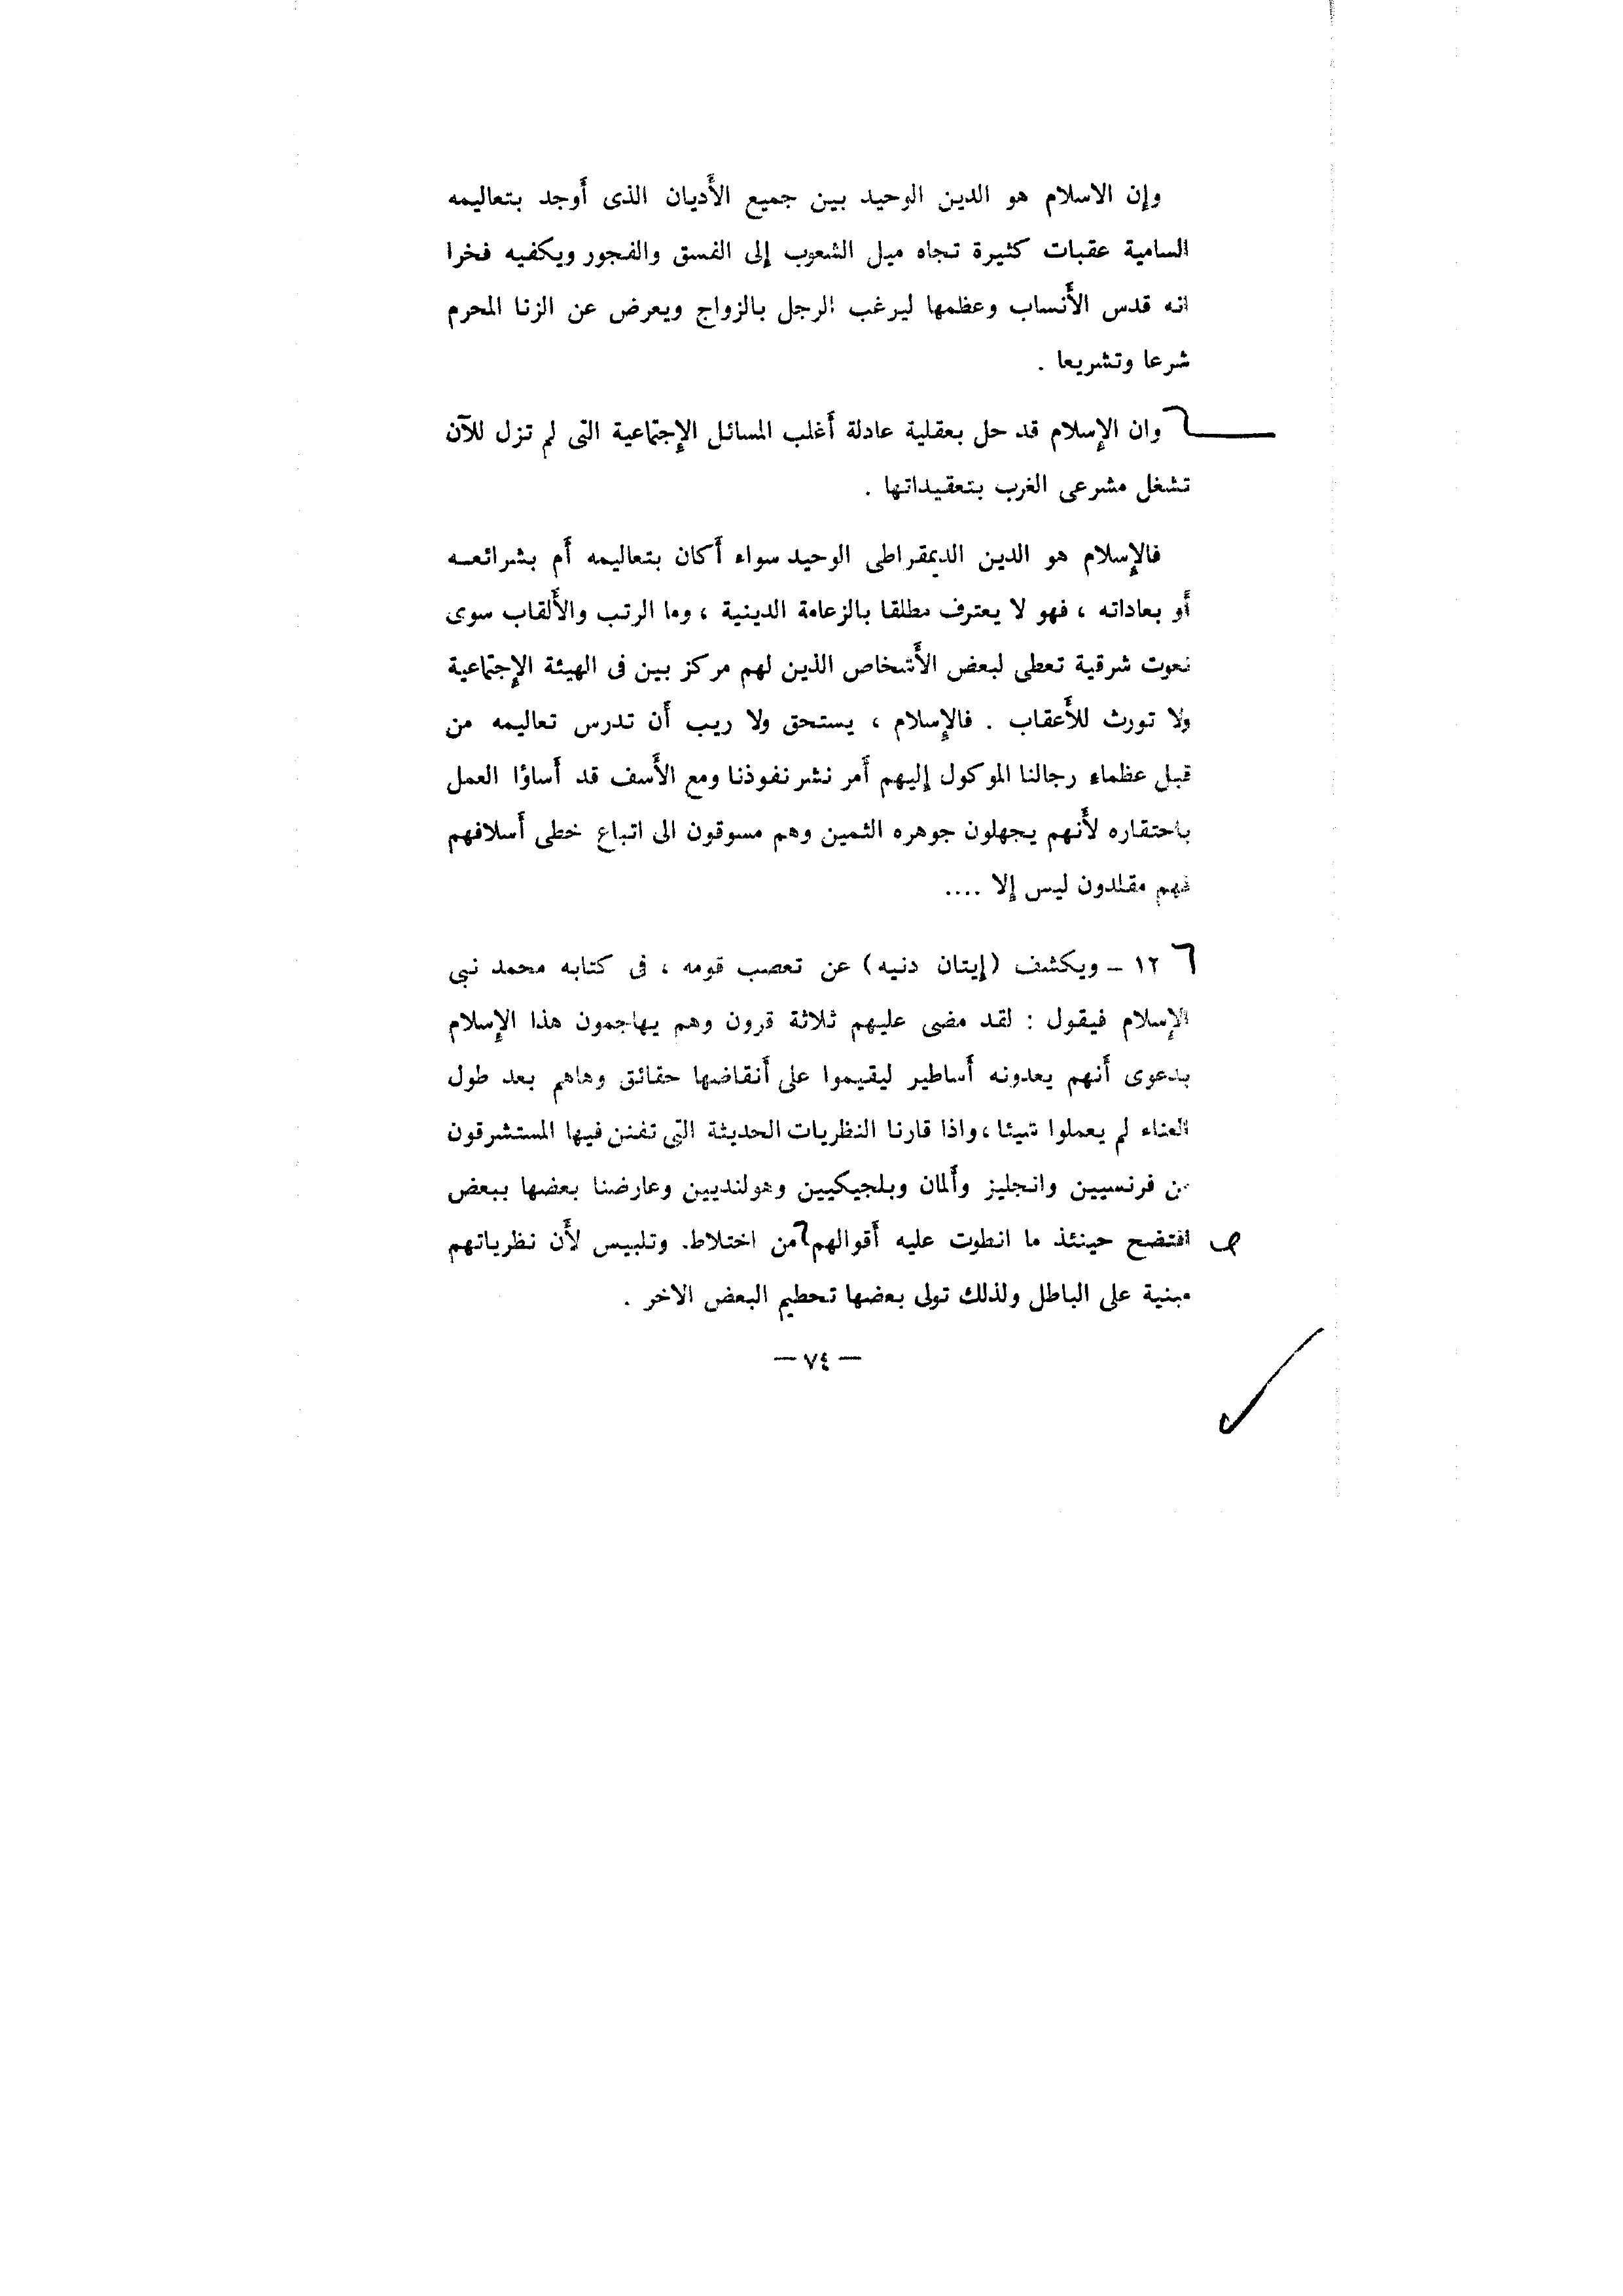 وإن الاسلام هو الدين الوحيد بين جميع الأديان الذى أوجد بتعاليمه
السامية عقبات كثيرة تجاه ميل الشعوب إلى الفسق والفجور ويكفيه فخرا
انه قدس الأنساب وعظمها ليرغب الرجل بالزواج ويعرض عن الزنا المحرم
شرعا وتشريعا .
وان الإسلام قد حل بعقلية عادلة أغلب المسائل الإجتماعية التى لم تزل للآن
تشغل مشرعى الغرب بتعقيداتها .
فالإسلام هو الدين الديمقراطى الوحيد سواء أكان بتعاليمه أم بشرائعه
أو بعاداته ، فهو لا يعترف مطلقا بالزعامة الدينية ، وما الرتب والألقاب سوى
نعوت شرقية تعطى لبعض الأشخاص الذين لهم مركز بين فى الهيئة الإجتماعية
ولا تورث للأعقاب . فالإسلام ، يستحق ولا ريب أن تدرس تعاليمه من
قبل عظماء رجالنا الموكول إليهم أمر نشر نفوذنا ومع الأسف قد أساؤا العمل
باحتقاره لأنهم يجهلون جوهره الثمين وهم مسوقون الى اتباع خطى أسلافهم
فهم مقلدون ليس إلا ....
١٢ ـ ويكشف (إيتان دنيه) عن تعصب قومه ، فى كتابه محمد نبى
الإسلام فيقول : لقد مضى عليهم ثلاثة قرون وهم يهاجمون هذا الإسلام
بدعوى أنهم يعدونه أساطير ليقيموا على أنقاضها حقائق وهاهم بعد طول
العناء لم يعملوا شيئا ، واذا قارنا النظريات الحديثة التى تفنن فيها المستشرقون
من فرنسيين وانجليز وألمان وبلجيكيين وهولنديين وعارضنا بعضها ببعض
افتضح حينئذ ما انطوت عليه أقوالهم من اختلاط. وتلبيس لأن نظرياتهم
مبنية على الباطل ولذلك تولى بعضها تحطيم البعض الاخر .
— ٧٤ —